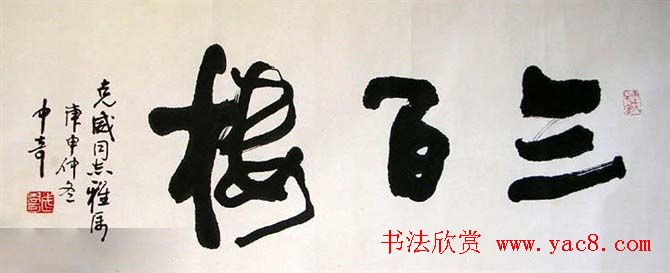 三百楼
克威同志雅属
庚申仲冬
中奇
书法欣赏 www.yac8.com